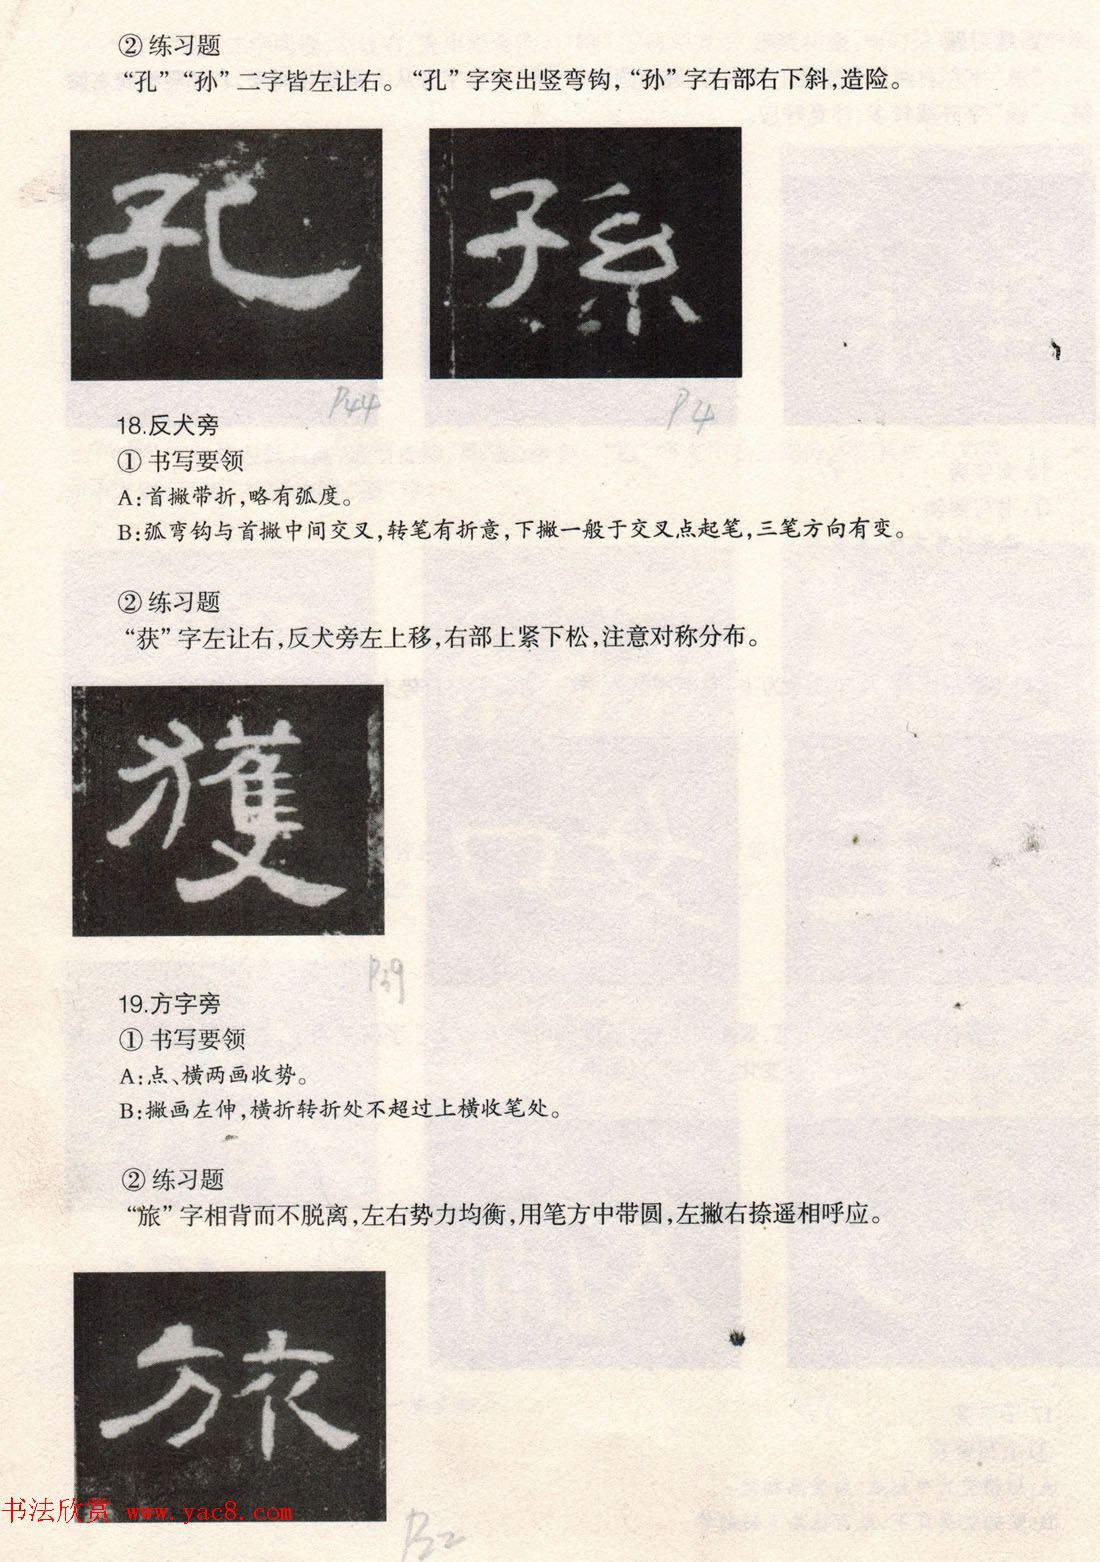 ② 练习题
“孔”“孙”二字皆左让右。“孔”字突出竖弯钩，“孙”字右部右下斜，造险。
孔
孫
P44
P4
18.反犬旁
① 书写要领
A：首撇带折，略有弧度。
B：弧弯钩与首撇中间交叉，转笔有折意，下撇一般于交叉点起笔，三笔方向有变。
② 练习题
“获”字左让右，反犬旁左上移，右部上紧下松，注意对称分布。
獲
P39
19.方字旁
① 书写要领
A：点、横两画收势。
B：撇画左伸，横折转折处不超过上横收笔处。
② 练习题
“旅”字相背而不脱离，左右势力均衡，用笔方中带圆，左撇右捺遥相呼应。
旅
书法欣赏 www.yac8.com
P32